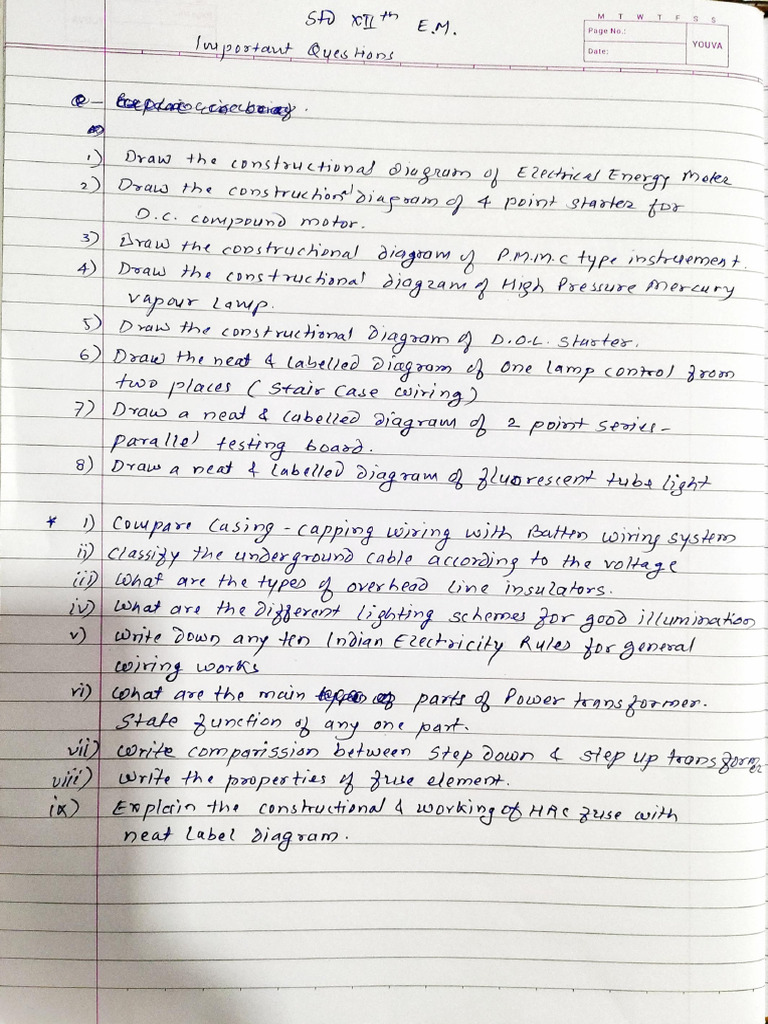 Std XIIth E.M.
Important Questions
M T W T F S S
Page No.:
Date:
YOUVA
Q -
1) Draw the constructional diagram of Electrical Energy Meter
2) Draw the constructional Diagram of 4 point starter for
D.C. compound motor.
3) Draw the constructional diagram of P.M.M.C type instruement.
4) Draw the constructional diagram of High Pressure Mercury
vapour Lamp.
5) Draw the constructional Diagram of D.O.L. Starter.
6) Draw the neat & Labelled Diagram of one lamp control from
two places ( Stair Case wiring )
7) Draw a neat & Labelled diagram of 2 point series-
parallel testing board.
8) Draw a neat & Labelled Diagram of fluorescent tube light
* i) Compare Casing - capping wiring with Batten wiring system
ii) Classify the underground cable according to the voltage
iii) What are the types of overhead line insulators.
iv) What are the Different lighting schemes for good illumination
v) Write Down any ten Indian Electricity Rules for general
wiring works
vi) What are the main parts of Power transformer.
State function of any one part.
vii) Write comparission between Step Down & Step up transformer
viii) Write the properties of fuse element.
ix) Explain the constructional & working of HRC fuse with
neat Label Diagram.